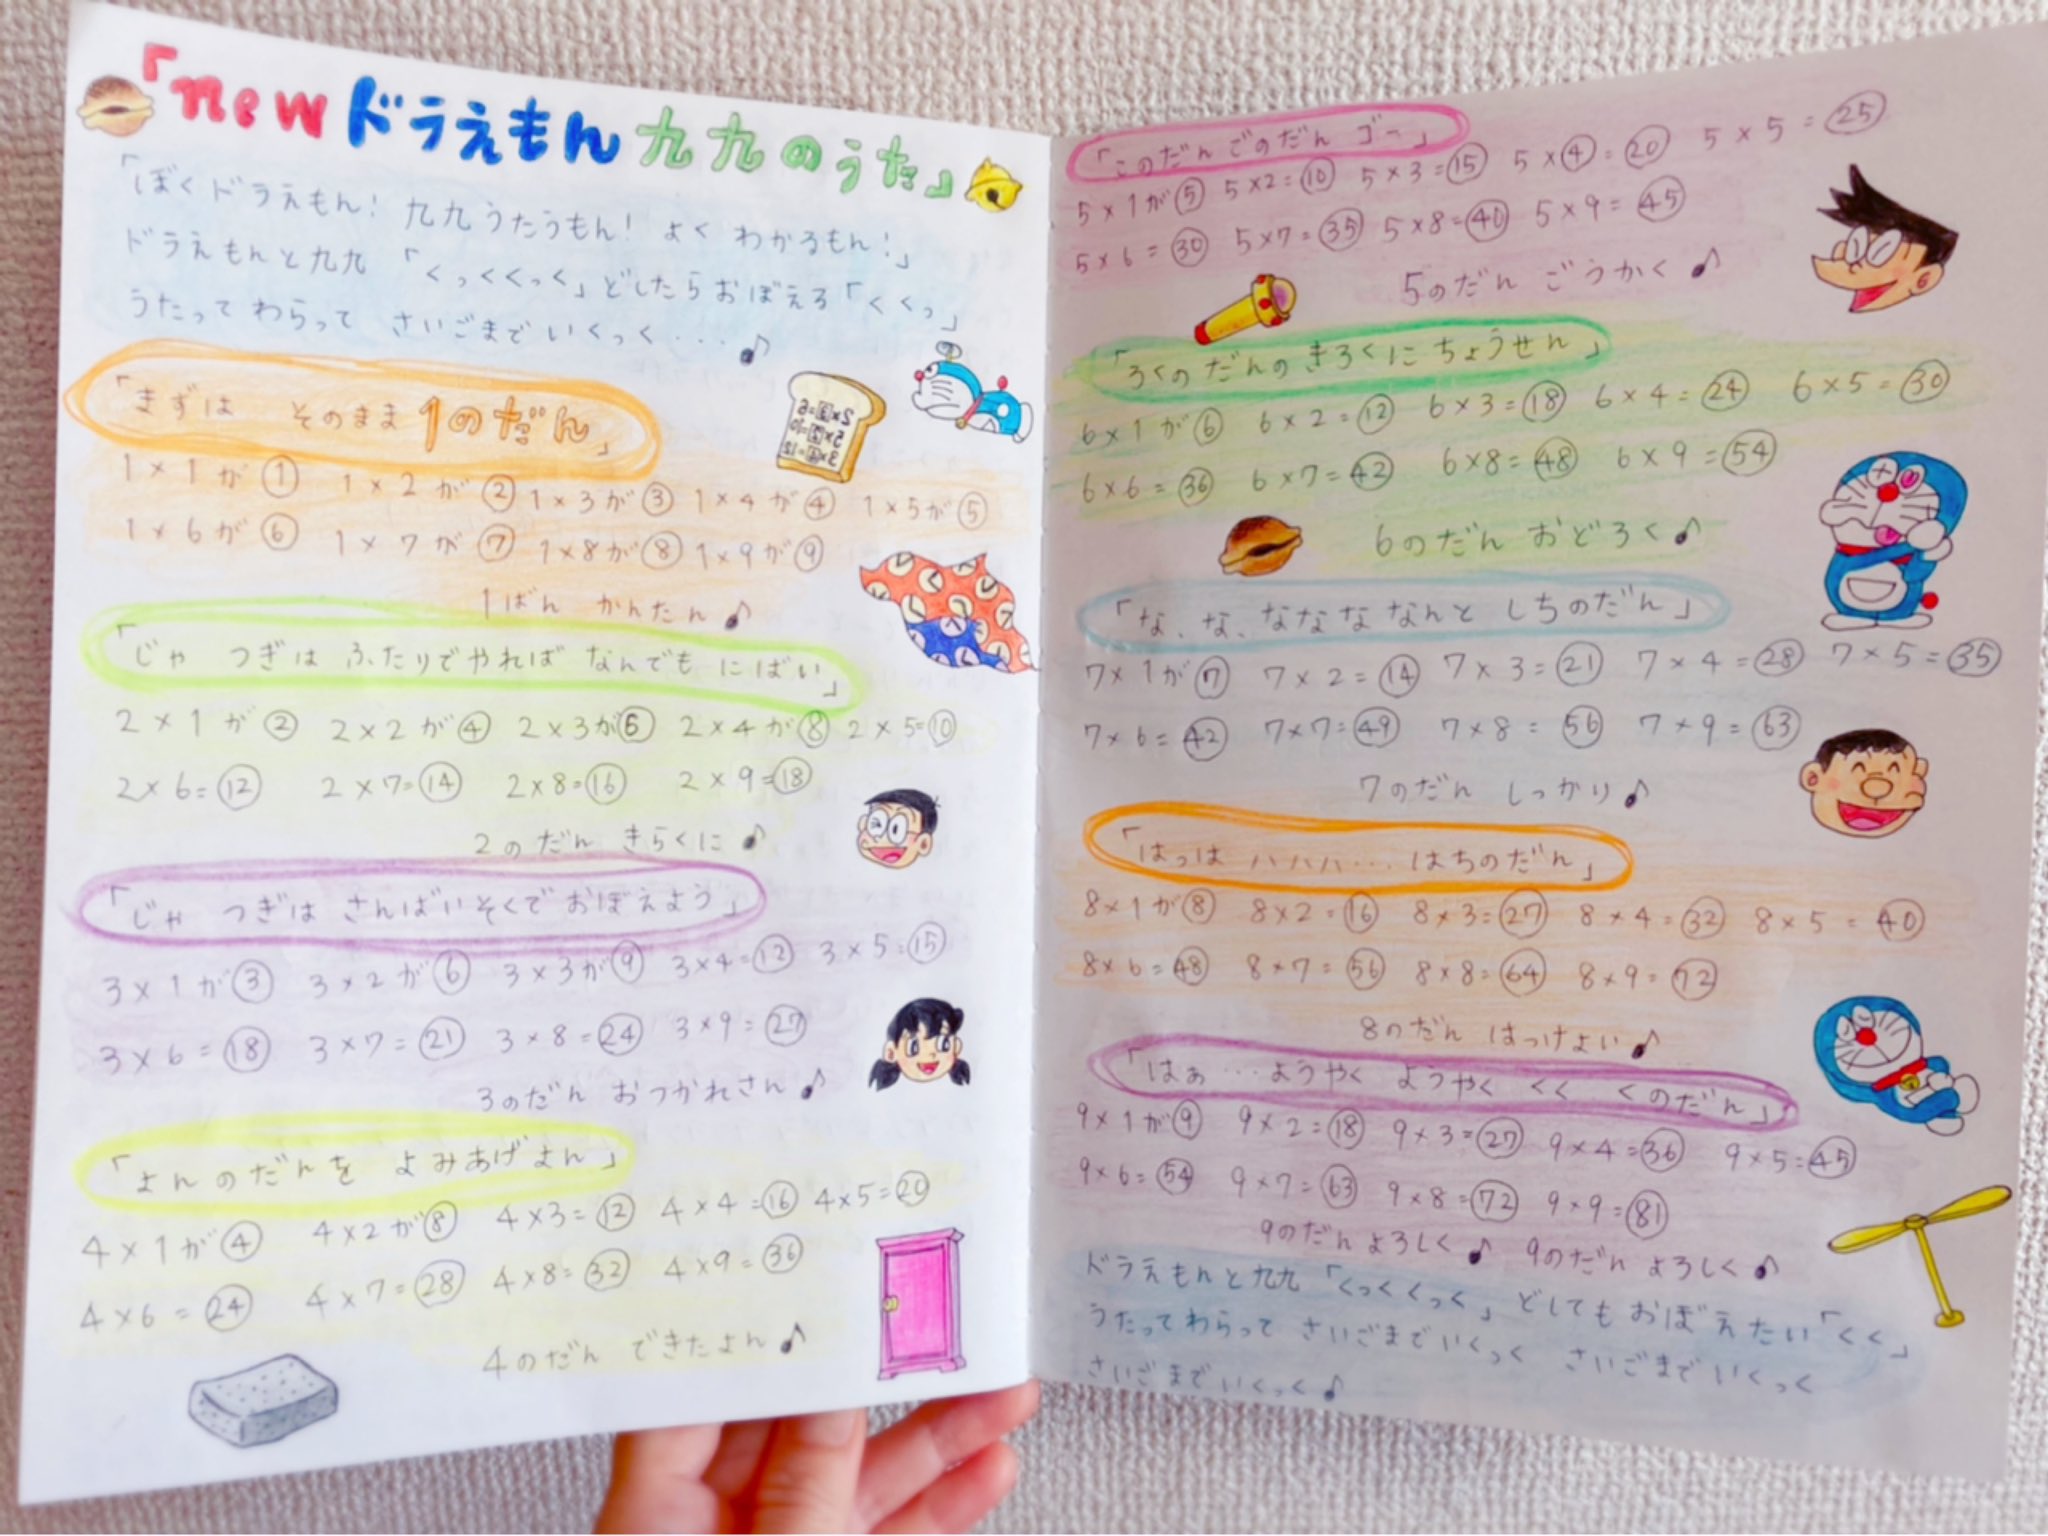 「new ドラえもん 九九のうた」
「ぼくドラえもん! 九九うたうもん! よく わかるもん!」
ドラえもんと九九 「くっくくっく」どしたらおぼえる「くくっ」
うたって わらって さいごまで いくっく・・・♪
「まずは そのまま 1のだん」
1×1が① 1×2が② 1×3が③ 1×4が④ 1×5が⑤
1×6が⑥ 1×7が⑦ 1×8が⑧ 1×9が⑨
1ばん かんたん♪
「じゃ つぎは ふたりでやれば なんでも にばい」
2×1が② 2×2が④ 2×3が⑥ 2×4が⑧ 2×5=⑩
2×6=⑫ 2×7=⑭ 2×8=⑯ 2×9=⑱
2のだん きらくに♪
「じゃ つぎは さんばいそくで おぼえよう」
3×1が③ 3×2が⑥ 3×3が⑨ 3×4=⑫ 3×5=⑮
3×6=⑱ 3×7=㉑ 3×8=㉔ 3×9=㉗
3のだん おつかれさん♪
「よんのだんを よみあげよん」
4×1が④ 4×2が⑧ 4×3=⑫ 4×4=⑯ 4×5=⑳
4×6=㉔ 4×7=㉘ 4×8=㉜ 4×9=㊱
4のだん できたよん♪
「このだんごのだん ゴー」
5×1が⑤ 5×2=⑩ 5×3=⑮ 5×④=⑳ 5×5=㉕
5×6=㉚ 5×7=㉟ 5×8=㊵ 5×9=㊺
5のだん ごうかく♪
「ろくのだんのきろくに ちょうせん」
6×1が⑥ 6×2=⑫ 6×3=⑱ 6×4=㉔ 6×5=㉚
6×6=㊱ 6×7=㊷ 6×8=㊽ 6×9=54
6のだん おどろく♪
「な、な、ななななんと しちのだん」
7×1が⑦ 7×2=⑭ 7×3=㉑ 7×4=㉘ 7×5=㉟
7×6=㊷ 7×7=㊾ 7×8=56 7×9=63
7のだん しっかり♪
「はっは ハハハ・・・ はちのだん」
8×1が⑧ 8×2=⑯ 8×3=㉗ 8×4=㉜ 8×5=㊵
8×6=㊽ 8×7=56 8×8=64 8×9=72
8のだん はっけよい♪
「はぁ・・・ようやく ようやく くく くのだん」
9×1が⑨ 9×2=⑱ 9×3=㉗ 9×4=㊱ 9×5=㊺
9×6=54 9×7=63 9×8=72 9×9=81
9のだん よろしく♪ 9のだん よろしく♪
ドラえもんと九九「くっくくっく」どしても おぼえたい「くく」
うたって わらって さいごまでいくっく さいごまで いくっく
さいごまで いくっく♪